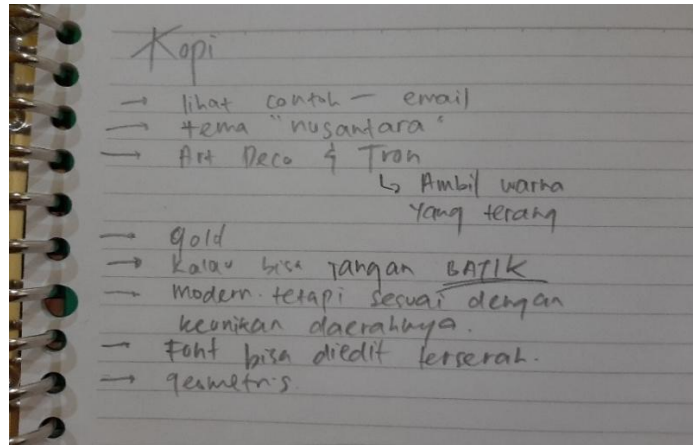 Kopi
→ lihat contoh — email
→ tema "nusantara"
→ Art Deco & Tron
↳ Ambil warna
yang terang
→ gold
→ Kalau bisa jangan BATIK
→ Modern tetapi sesuai dengan
keunikan daerahnya.
→ Font bisa diedit terserah.
→ geometris.